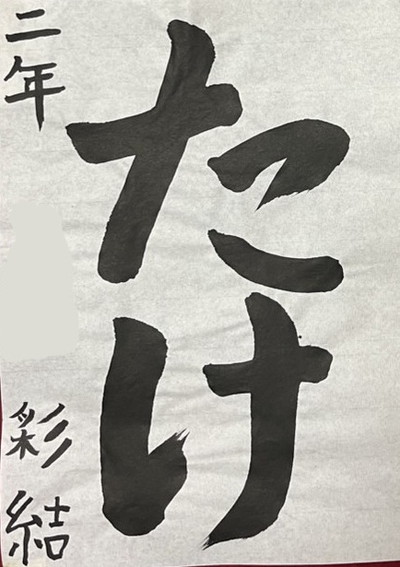 たけ
二年 彩結